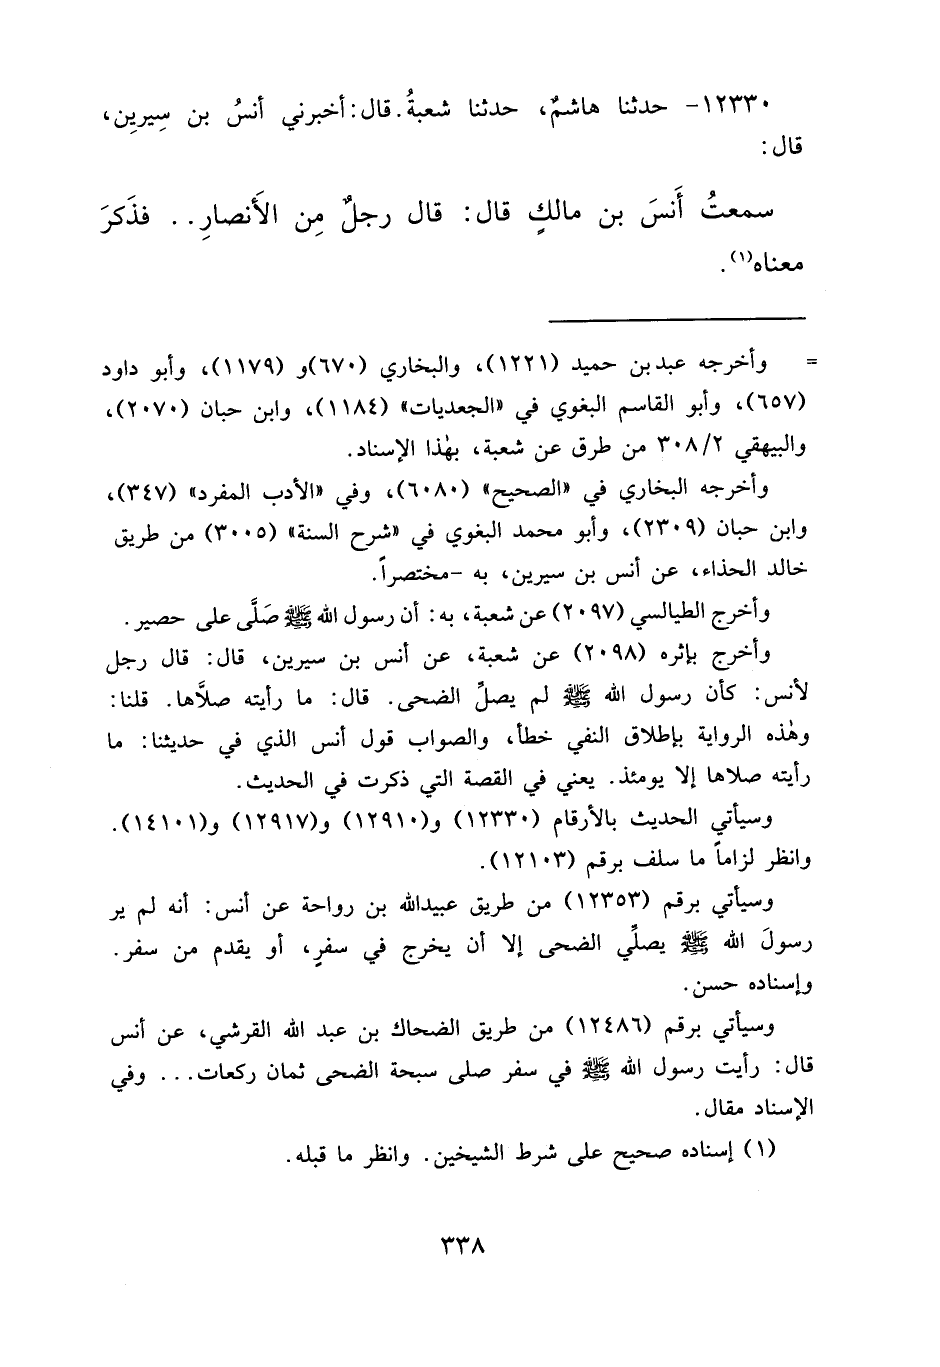 ١٢٣٣٠- حدثنا هاشمٌ، حدثنا شعبةُ. قال: أخبرني أنسُ بن سِيرِين،
قال:
سمعتُ أَنسَ بن مالكٍ قال: قال رجلٌ مِن الأَنصارِ.. فذَكرَ
معناه(١).
= وأخرجه عبد بن حميد (١٢٢١)، والبخاري (٦٧٠)و (١١٧٩)، وأبو داود
(٦٥٧)، وأبو القاسم البغوي في «الجعديات» (١١٨٤)، وابن حبان (٢٠٧٠)،
والبيهقي ٣٠٨/٢ من طرق عن شعبة، بهٰذا الإسناد.
وأخرجه البخاري في «الصحيح» (٦٠٨٠)، وفي «الأدب المفرد» (٣٤٧)،
وابن حبان (٢٣٠٩)، وأبو محمد البغوي في «شرح السنة» (٣٠٠٥) من طريق
خالد الحذاء، عن أنس بن سيرين، به -مختصراً.
وأخرج الطيالسي (٢٠٩٧) عن شعبة، به: أن رسول الله ﷺ صَلَّى على حصير.
وأخرج بإثره (٢٠٩٨) عن شعبة، عن أنس بن سيرين، قال: قال رجل
لأنس: كأن رسول الله ﷺ لم يصلِّ الضحى. قال: ما رأيته صلاَّها. قلنا:
وهٰذه الرواية بإطلاق النفي خطأ، والصواب قول أنس الذي في حديثنا: ما
رأيته صلاها إلا يومئذ. يعني في القصة التي ذكرت في الحديث.
وسيأتي الحديث بالأرقام (١٢٣٣٠) و(١٢٩١٠) و(١٢٩١٧) و(١٤١٠١).
وانظر لزاماً ما سلف برقم (١٢١٠٣).
وسيأتي برقم (١٢٣٥٣) من طريق عبيدالله بن رواحة عن أنس: أنه لم ير
رسولَ الله ﷺ يصلِّي الضحى إلا أن يخرج في سفرٍ، أو يقدم من سفر.
وإسناده حسن.
وسيأتي برقم (١٢٤٨٦) من طريق الضحاك بن عبد الله القرشي، عن أنس
قال: رأيت رسول الله ﷺ في سفر صلى سبحة الضحى ثمان ركعات... وفي
الإسناد مقال.
(١) إسناده صحيح على شرط الشيخين. وانظر ما قبله.
٣٣٨